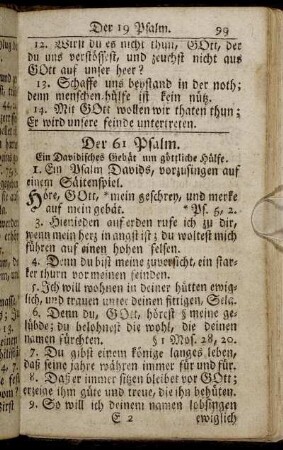 Der 19 Psalm. 99
12. Wirst du es nicht thun, GOtt, der
du uns verstössest, und zeuchst nicht aus
GOtt auf unser heer?
13. Schaffe uns beystand in der noth;
denn menschen-hülfe ist kein nütz.
14. Mit GOtt wollen wir thaten thun;
Er wird unsere feinde untertreten.
Der 61 Psalm.
Ein Davidisches Gebät um göttliche Hülfe.
1. Ein Psalm Davids, vorzusingen auf
einem Säitenspiel.
Höre, GOtt, *mein geschrey, und merke
auf mein gebät. * Ps. 5, 2.
3. Hienieden auf erden rufe ich zu dir,
wenn mein herz in angst ist; du woltest mich
führen auf einen hohen felsen.
4. Denn du bist meine zuversicht, ein star-
ker thurn vor meinen feinden.
5. Ich will wohnen in deiner hütten ewig-
lich, und trauen unter deinen fittigen, Sela.
6. Denn du, GOtt, hörest § meine ge-
lübde; du belohnest die wohl, die deinen
namen fürchten. § 1 Mos. 28, 20.
7. Du gibst einem könige langes leben,
daß seine jahre währen immer für und für.
8. Daß er immer sitzen bleibet vor GOtt;
erzeige ihm güte und treue, die ihn behüten.
9. So will ich deinem namen lobsingen
E 2 ewiglich